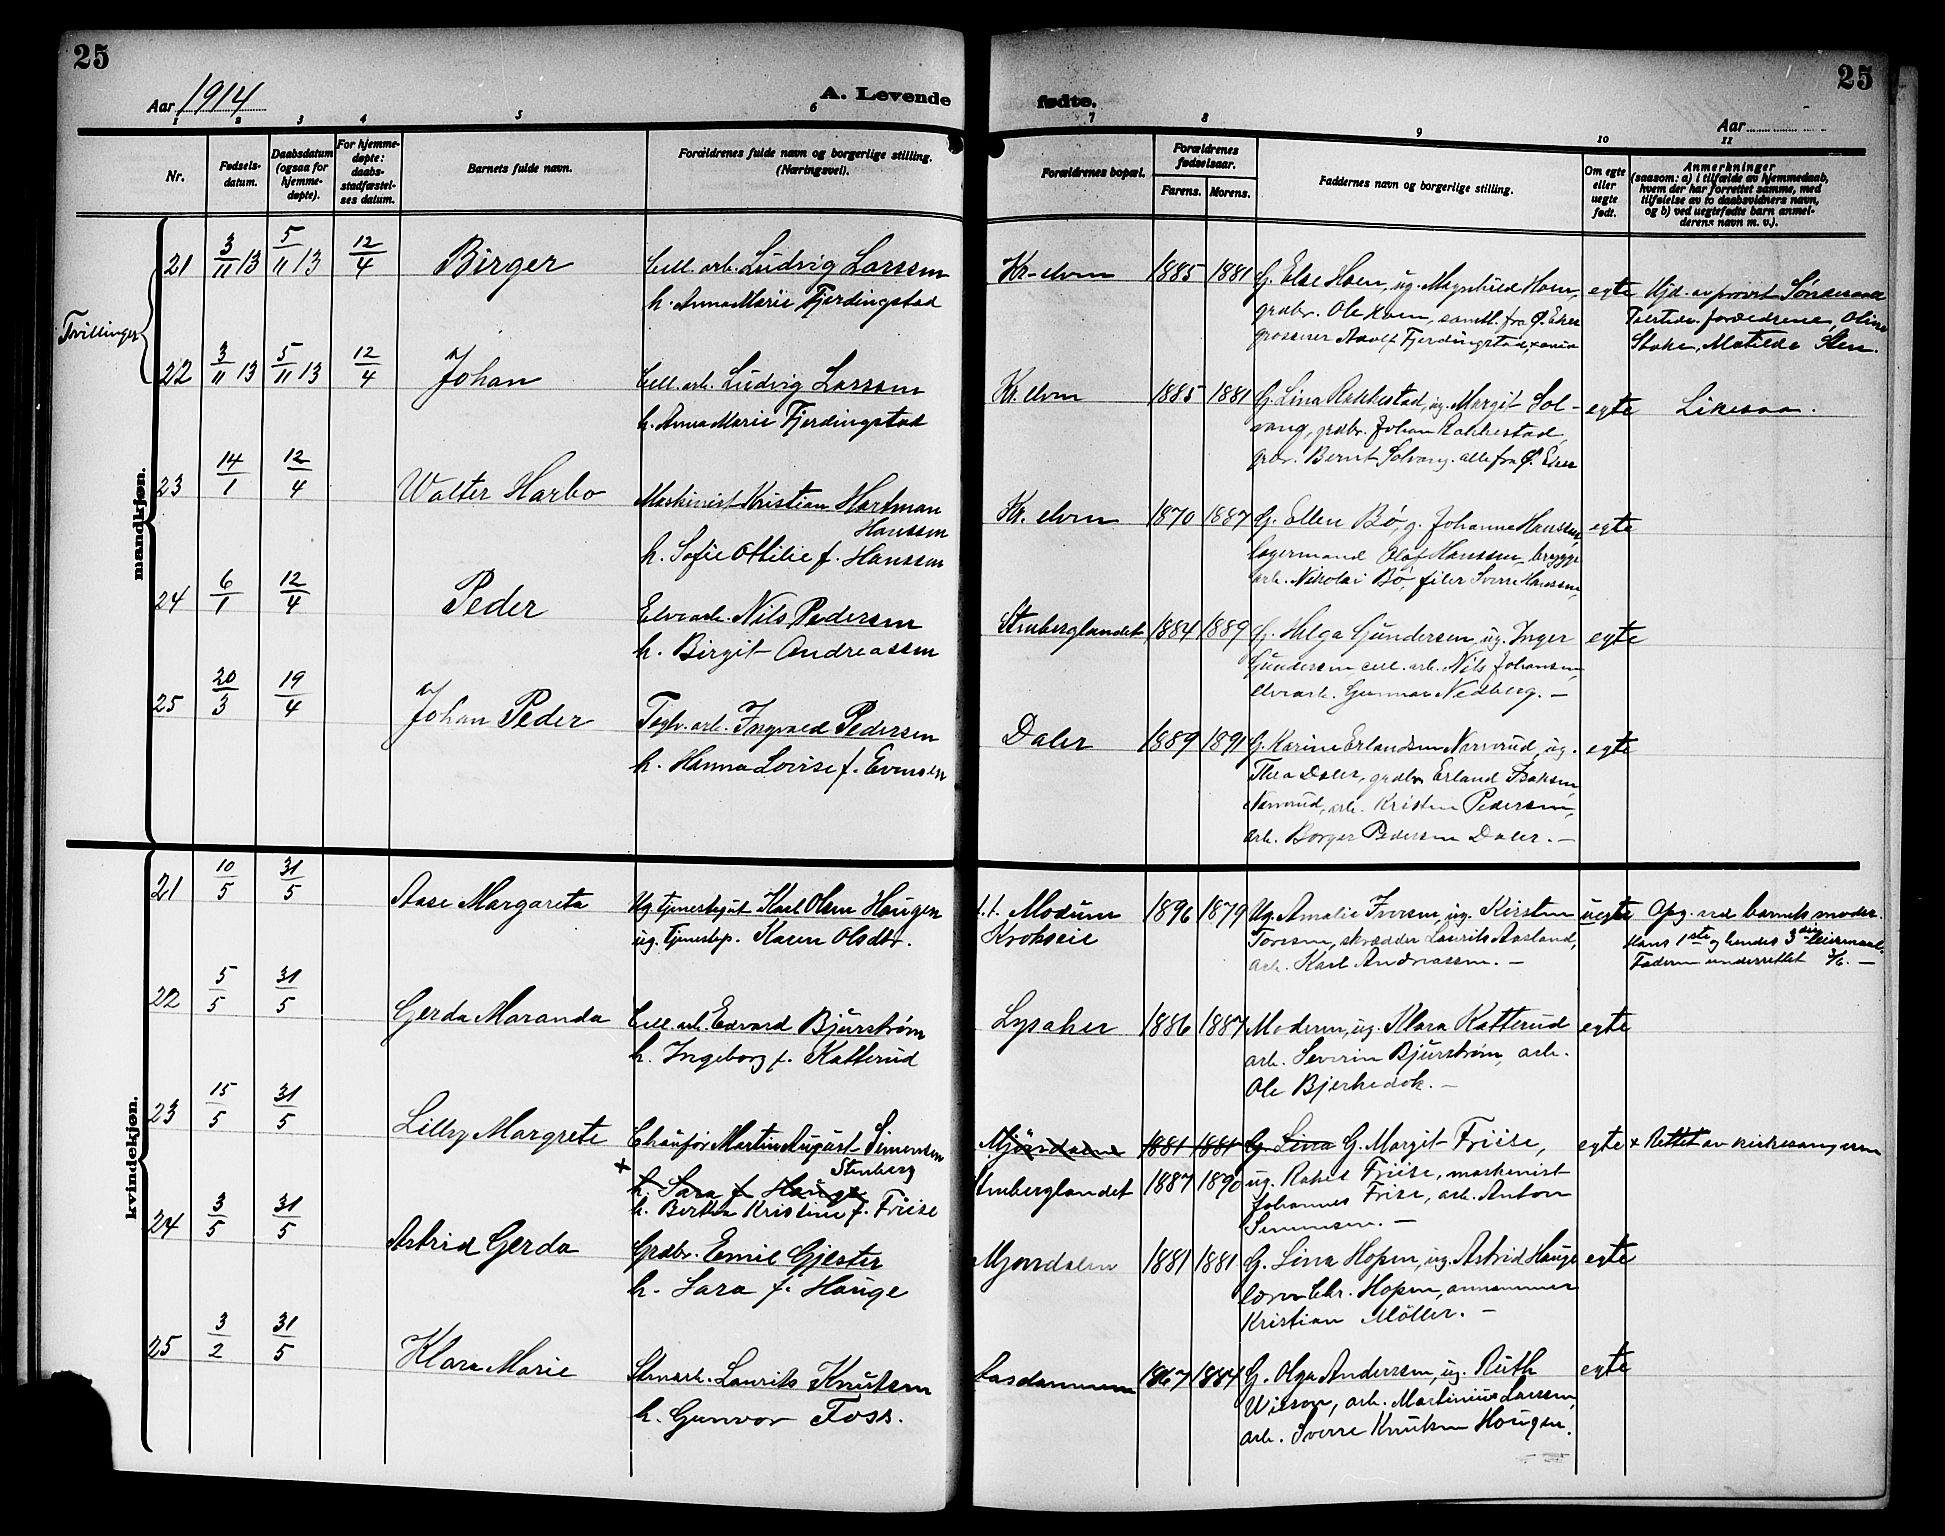 25
25
Aar 1914
A. Levende
fødte.
Aar
1 2 3 4 5 6 7 8 9 10 11
Nr.
Fødsels-
datum.
Daabsdatum
(ogsaa for
hjemme-
døpte).
For hjemme-
døpte:
daabs-
stadfæstel-
ses datum.
Barnets fulde navn.
Forældrenes fulde navn og borgerlige stilling.
(Næringsvei).
Forældrenes bopæl.
Forældrenes
fødselsaar.
Farens. Morens.
Faddernes navn og borgerlige stilling.
Om egte
eller
uegte
født.
Anmerkninger
(saasom: a) i tilfælde av hjemmedaab,
hvem der har forrettet samme, med
tilføielse av to daabsvidners navn,
og b) ved uegtefødte barn anmel-
derens navn m. v.).
mandkjøn.
Tvillinger
21 3/11 13 5/11 13 12/4 Birger
Cell. arb. Ludvig Larssen
h. Anna Marie Fjerdingstad
Kr. elven 1885 1881
G. Else Hoen, ug. Magnhild Hoen,
grdbr. Ole Hoen, samtl. fra Ø. Eker
grosserer Adolf Fjerdingstad,
egte
Hjd. av provst Søndeaaa
forældrene, Oline
Stake, Matilde Sten.
22 3/11 13 5/11 13 12/4 Johan
Cell. arb. Ludvig Larssen
h. Anna Marie Fjerdingstad
Kr. elven 1885 1881
G. Lina Rakkestad, ug. Margit Sol-
vang, grdbr. Johan Rakkestad,
grdbr. Bernt Solvang. alle fra Ø. Eker
egte
Likesaa.
23 14/1 12/4 Walter Harbo
Maskinist Kristian Hartman
Hanssen
h. Sofie Ottilie f. Hanssen
Kr. elven 1870 1887
G. Ellen Bö, g. Johanne Hanssen,
lagermand Olaf Hanssen, brygge
arb. Nikolai Bö, filer Sverre Hanssen,
egte
24 6/1 12/4 Peder
Elvearb. Nils Pedersen
h. Birgit Andreassen
Stenberglandet 1884 1889
G. Helga Gundersen, ug. Inger
Gundersen, cell. arb. Nils Johansen,
elvearb. Gunnar Nedberg. —
egte
25 20/3 19/4 Johan Peder
Teglv. arb. Ingvald Pedersen
h. Hanna Lovise f. Evensen
Daler 1889 1891
G. Karine Erlandsen Narverud, ug.
Thea Daler, grdbr. Erland Isaksen
Narverud, arb. Kristen Pedersen,
arb. Borger Pedersen Daler. —
egte
kvindekjøn.
21 10/5 31/5 Aase Margareta
Ug. tjenestegut Karl Olsen Haugen
ug. tjenestep. Karen Olsdtr.
t. t. Modum
Krokseie
1896 1879
Ug. Amalie Iversen, ug. Kirsten
Toresen, skrædder Laurits Aasland,
arb. Karl Andreassen. —
uegte
Opg. ved barnets moder.
Hans 1ste og hendes 3die leiermaal.
Faderen underrettet 3/6. —
22 5/5 31/5 Gerda Maranda
Cell. arb. Edvard Bjurstrøm
h. Ingeborg f. Katterud
Lysaker 1886 1887
Moderen, ug. Klara Katterud
arb. Severin Bjurstrøm, arb.
Ole Bjerkedok. —
egte
23 15/5 31/5 Lilly Margrete
Chaufør Martin August Simensen
Stenberg
x h. Sara f. Hauge
h. Bertha Kristine f. Friise
Mjöndalen 1881 1881
Stenberglandet 1887 1890
G. Lina G. Margit Friise,
ug. Rakel Friise, maskinist
Johannes Friise, arb. Anton
Simensen. —
egte
x Rettet av kirkesangeren
24 3/5 31/5 Astrid Gerda
Grdbr. Emil Gjester
h. Sara f. Hauge
Mjøndalen 1881 1881
G. Lina Hopen, ug. Astrid Hauge
lærer Chr. Hopen,
Kristian Möller. —
egte
25 3/2 31/5 Klara Marie
Stenarb. Laurits Knutsen
h. Gunvor Foss.
Aasdammen 1867 1884
G. Olga Anderssen, ug. Ruth
Wilson, arb. Martinius Larssen,
arb. Sverre Knutsen Hougen.
egte